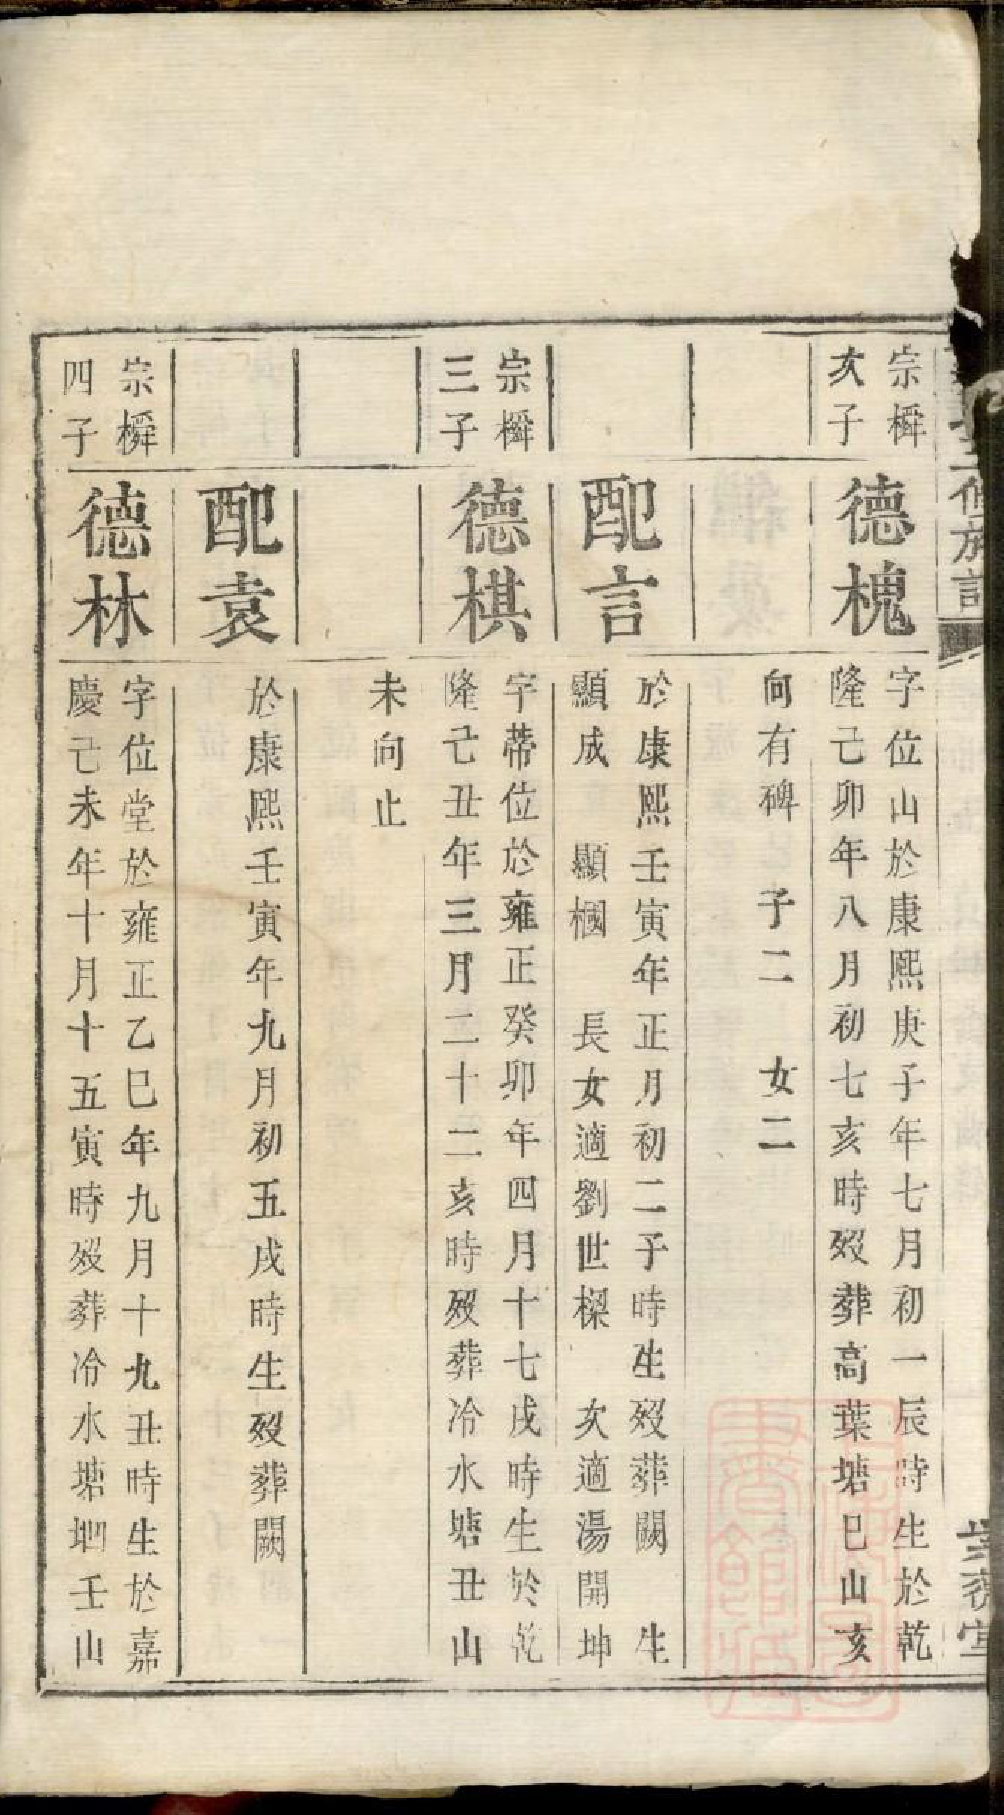 修族譜
宗橓
次子
德槐
字位山於康熙庚子年七月初一辰時生於乾
隆己卯年八月初七亥時歿葬高葉塘巳山亥
向有碑 子二 女二
配言
於康熙壬寅年正月初二子時生歿葬闕 生
顯成 顯槶 長女適劉世樑 次適湯開坤
宗橓
三子
德棋
字蒂位於雍正癸卯年四月十七戌時生於乾
隆己丑年三月二十二亥時歿葬冷水塘丑山
未向止
配袁
於康熙壬寅年九月初五戌時生歿葬闕
宗橓
四子
德林
字位堂於雍正乙巳年九月十九丑時生於嘉
慶己未年十月十五寅時歿葬冷水塘垇壬山